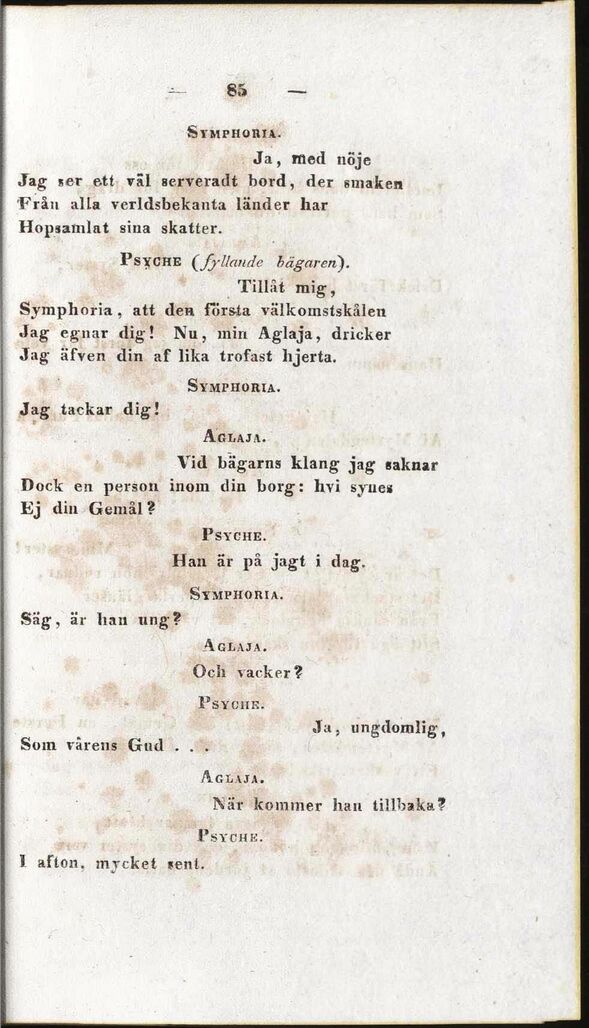 — 85 —
SYMPHORIA.
Ja, med nöje
Jag ser ett väl serveradt bord, der smaken
Från alla verldsbekanta länder har
Hopsamlat sina skatter.
PSYCHE (fyllande bägaren).
Tillåt mig,
Symphoria, att den första välkomstskålen
Jag egnar dig! Nu, min Aglaja, dricker
Jag äfven din af lika trofast hjerta.
SYMPHORIA.
Jag tackar dig!
AGLAJA.
Vid bägarns klang jag saknar
Dock en person inom din borg: hvi synes
Ej din Gemål?
PSYCHE.
Han är på jagt i dag.
SYMPHORIA.
Säg, är han ung?
AGLAJA.
Och vacker?
PSYCHE.
Ja, ungdomlig,
Som vårens Gud . . .
AGLAJA.
När kommer han tillbaka?
PSYCHE.
I afton, mycket sent.